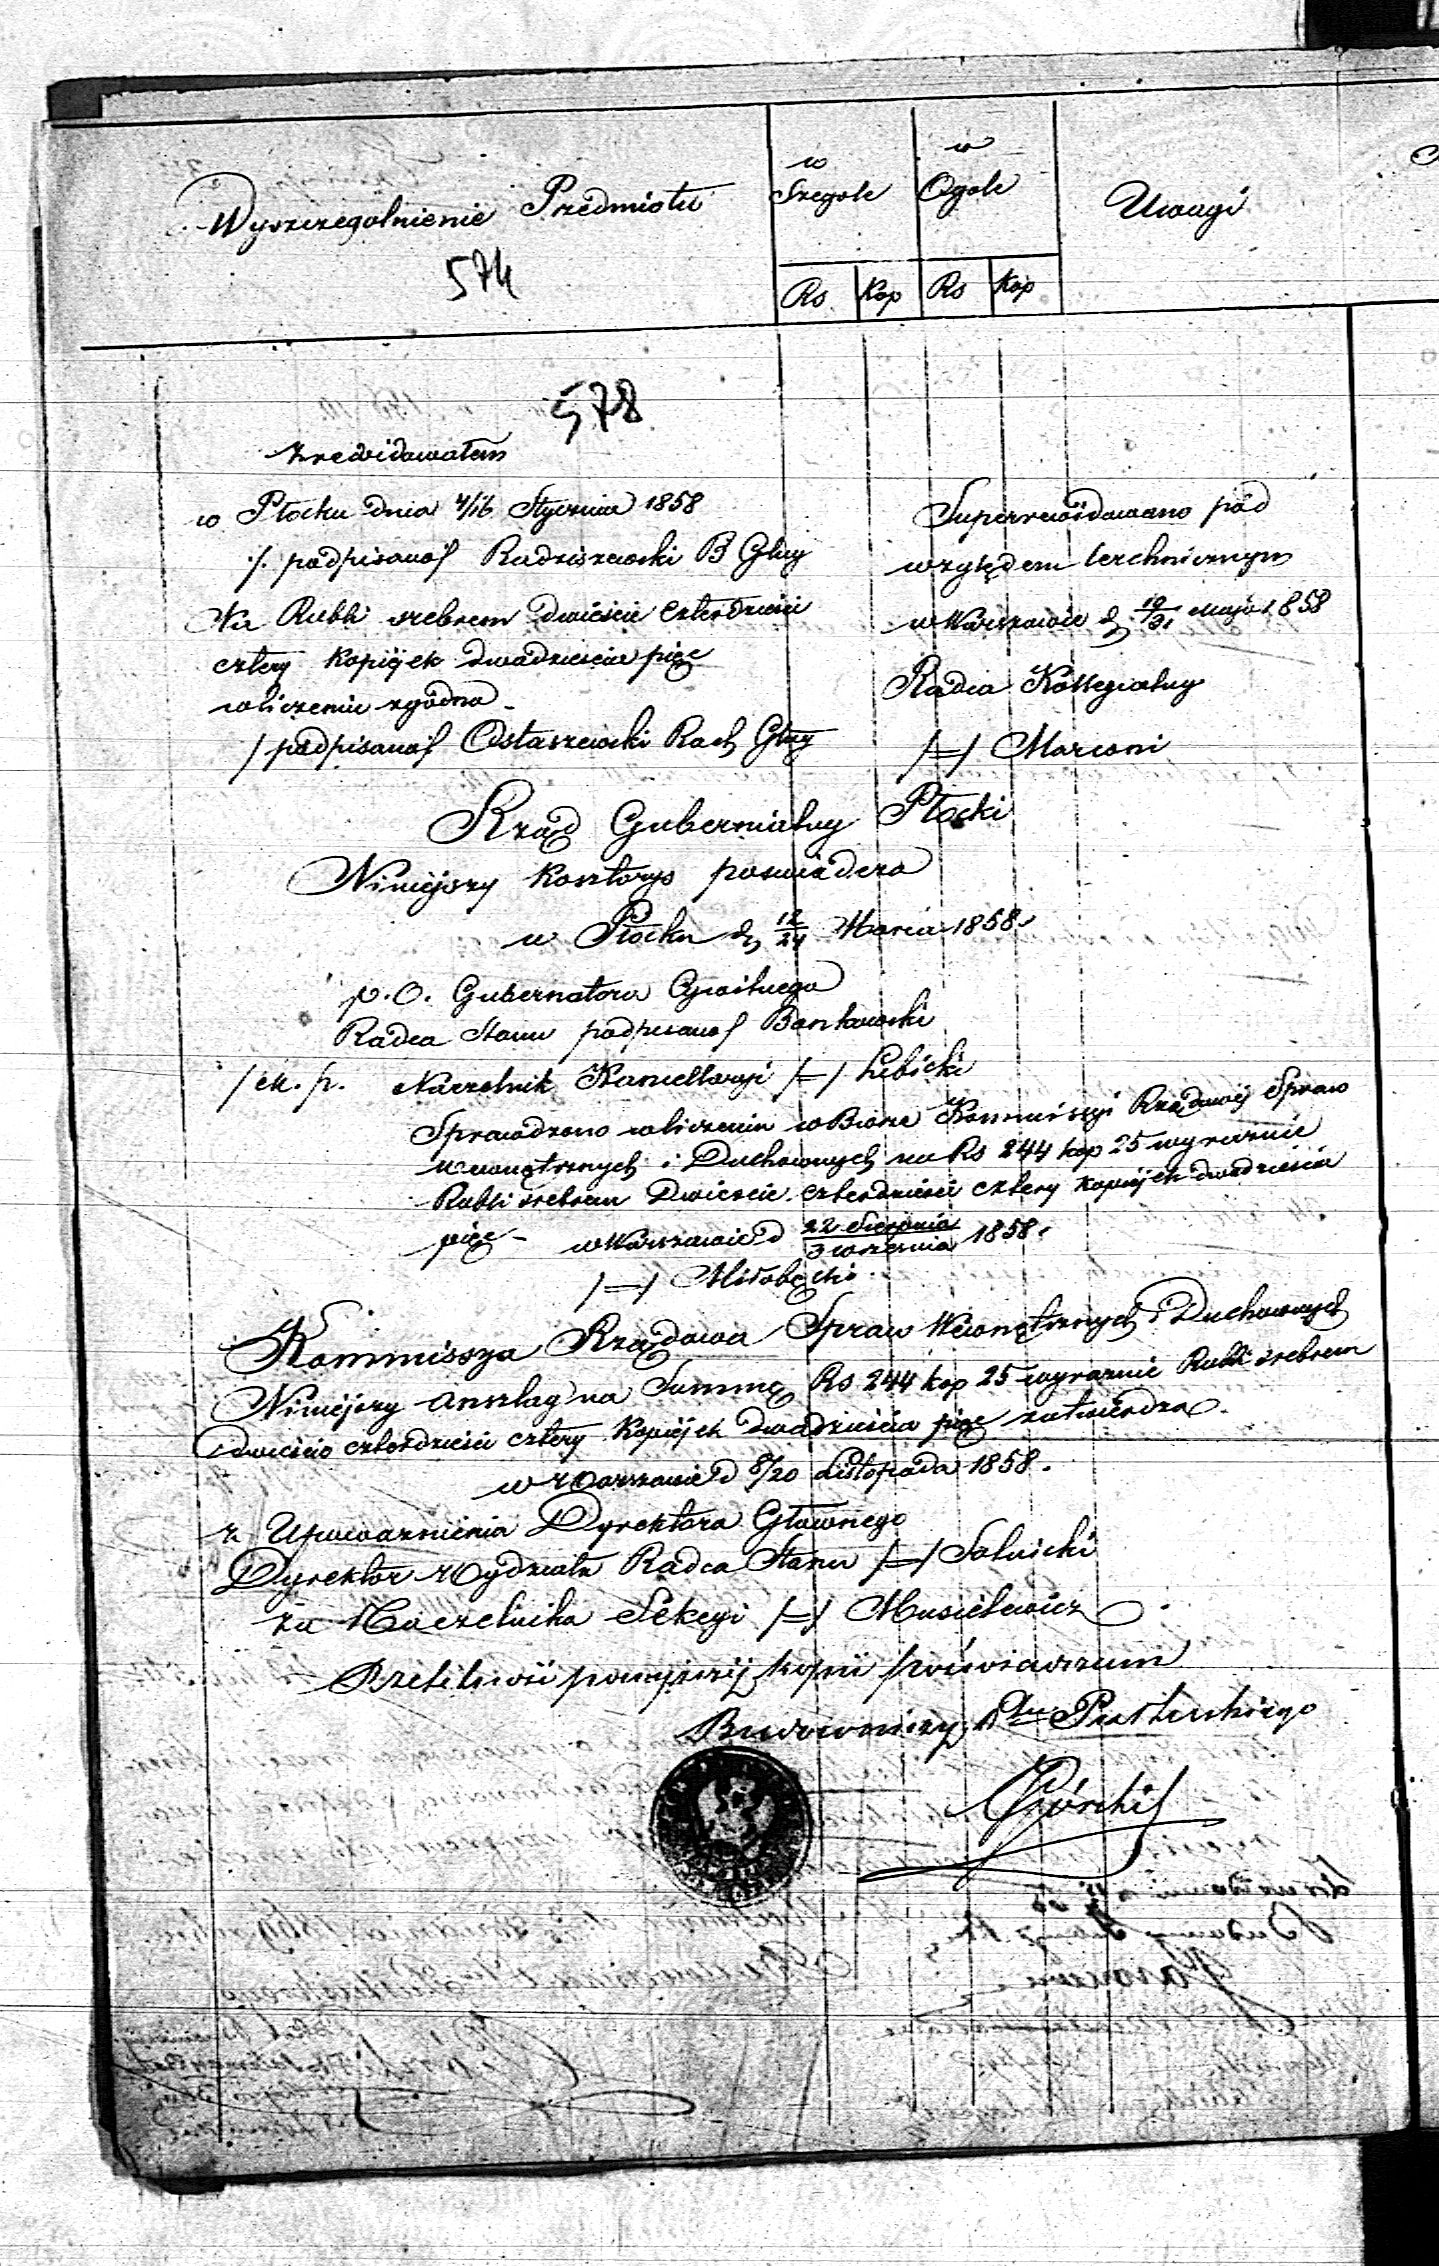 Wyszczegolnienie Przedmiotu
w Szegole
w Ogole
Uwagi
Rs Kop Rs Kop
574
578
Zrewidowałem
w Płocku dnia 4/16 Stycznia 1858
/. podpisano/ Radziszewski B Gługi
Na Rubli srebrem dwieście czterdzieści
cztery kopijek dwadzieścia pięc
w liczeniu zgodna
/podpisano/ Ostaszewski Rach Głny
Superrewidowano pod
względem technicznym
w Warszawie d 19/31 Maja 1858
Radca Kollegialny
/=/ Marconi
Rząd Gubernialny Płocki
Niniejszy Kosztorys poswiadcza
w Płocku d 12/24 Marca 1858.
p.O. Gubernatora Cywilnego
Radca Stanu podpisano/ Bonkowski
/M.p. Naczelnik Kancellaryi /=/ Lubicki
Sprawdzono w liczeniu w Biurze Kommissyi Rządowej Spraw
Wewnętrznych i Duchownych na Rs 244 kop 25 wyraznie
Rubli srebrem Dwiescie czterdzieści cztery kopijek dwadzieścia
pięc - w Warszawie d 22 Sierpnia/3 Wrzesnia 1858.
/=/ Miłobęcki
Kommissya Rządowa Spraw Wewnętrznych i Duchownych
Niniejszy anszlag na Summę Rs 244 kop 25 wyraznie Rubli srebrem
dwieście czterdzieści cztery Kopijek dwadzieścia pięc zatwierdza.
w Warszawie d 8/20 Listopada 1858.
z Upowaznienia Dyrektora Głównego
Dyrektor Wydziału Radca Stanu /=/ Solnicki
za Naczelnika Sekcyi /=/ Musielewicz
Rzetelność powyższej kopii poświadczam
Budowniczy Ptu Pułtuskiego
Górski